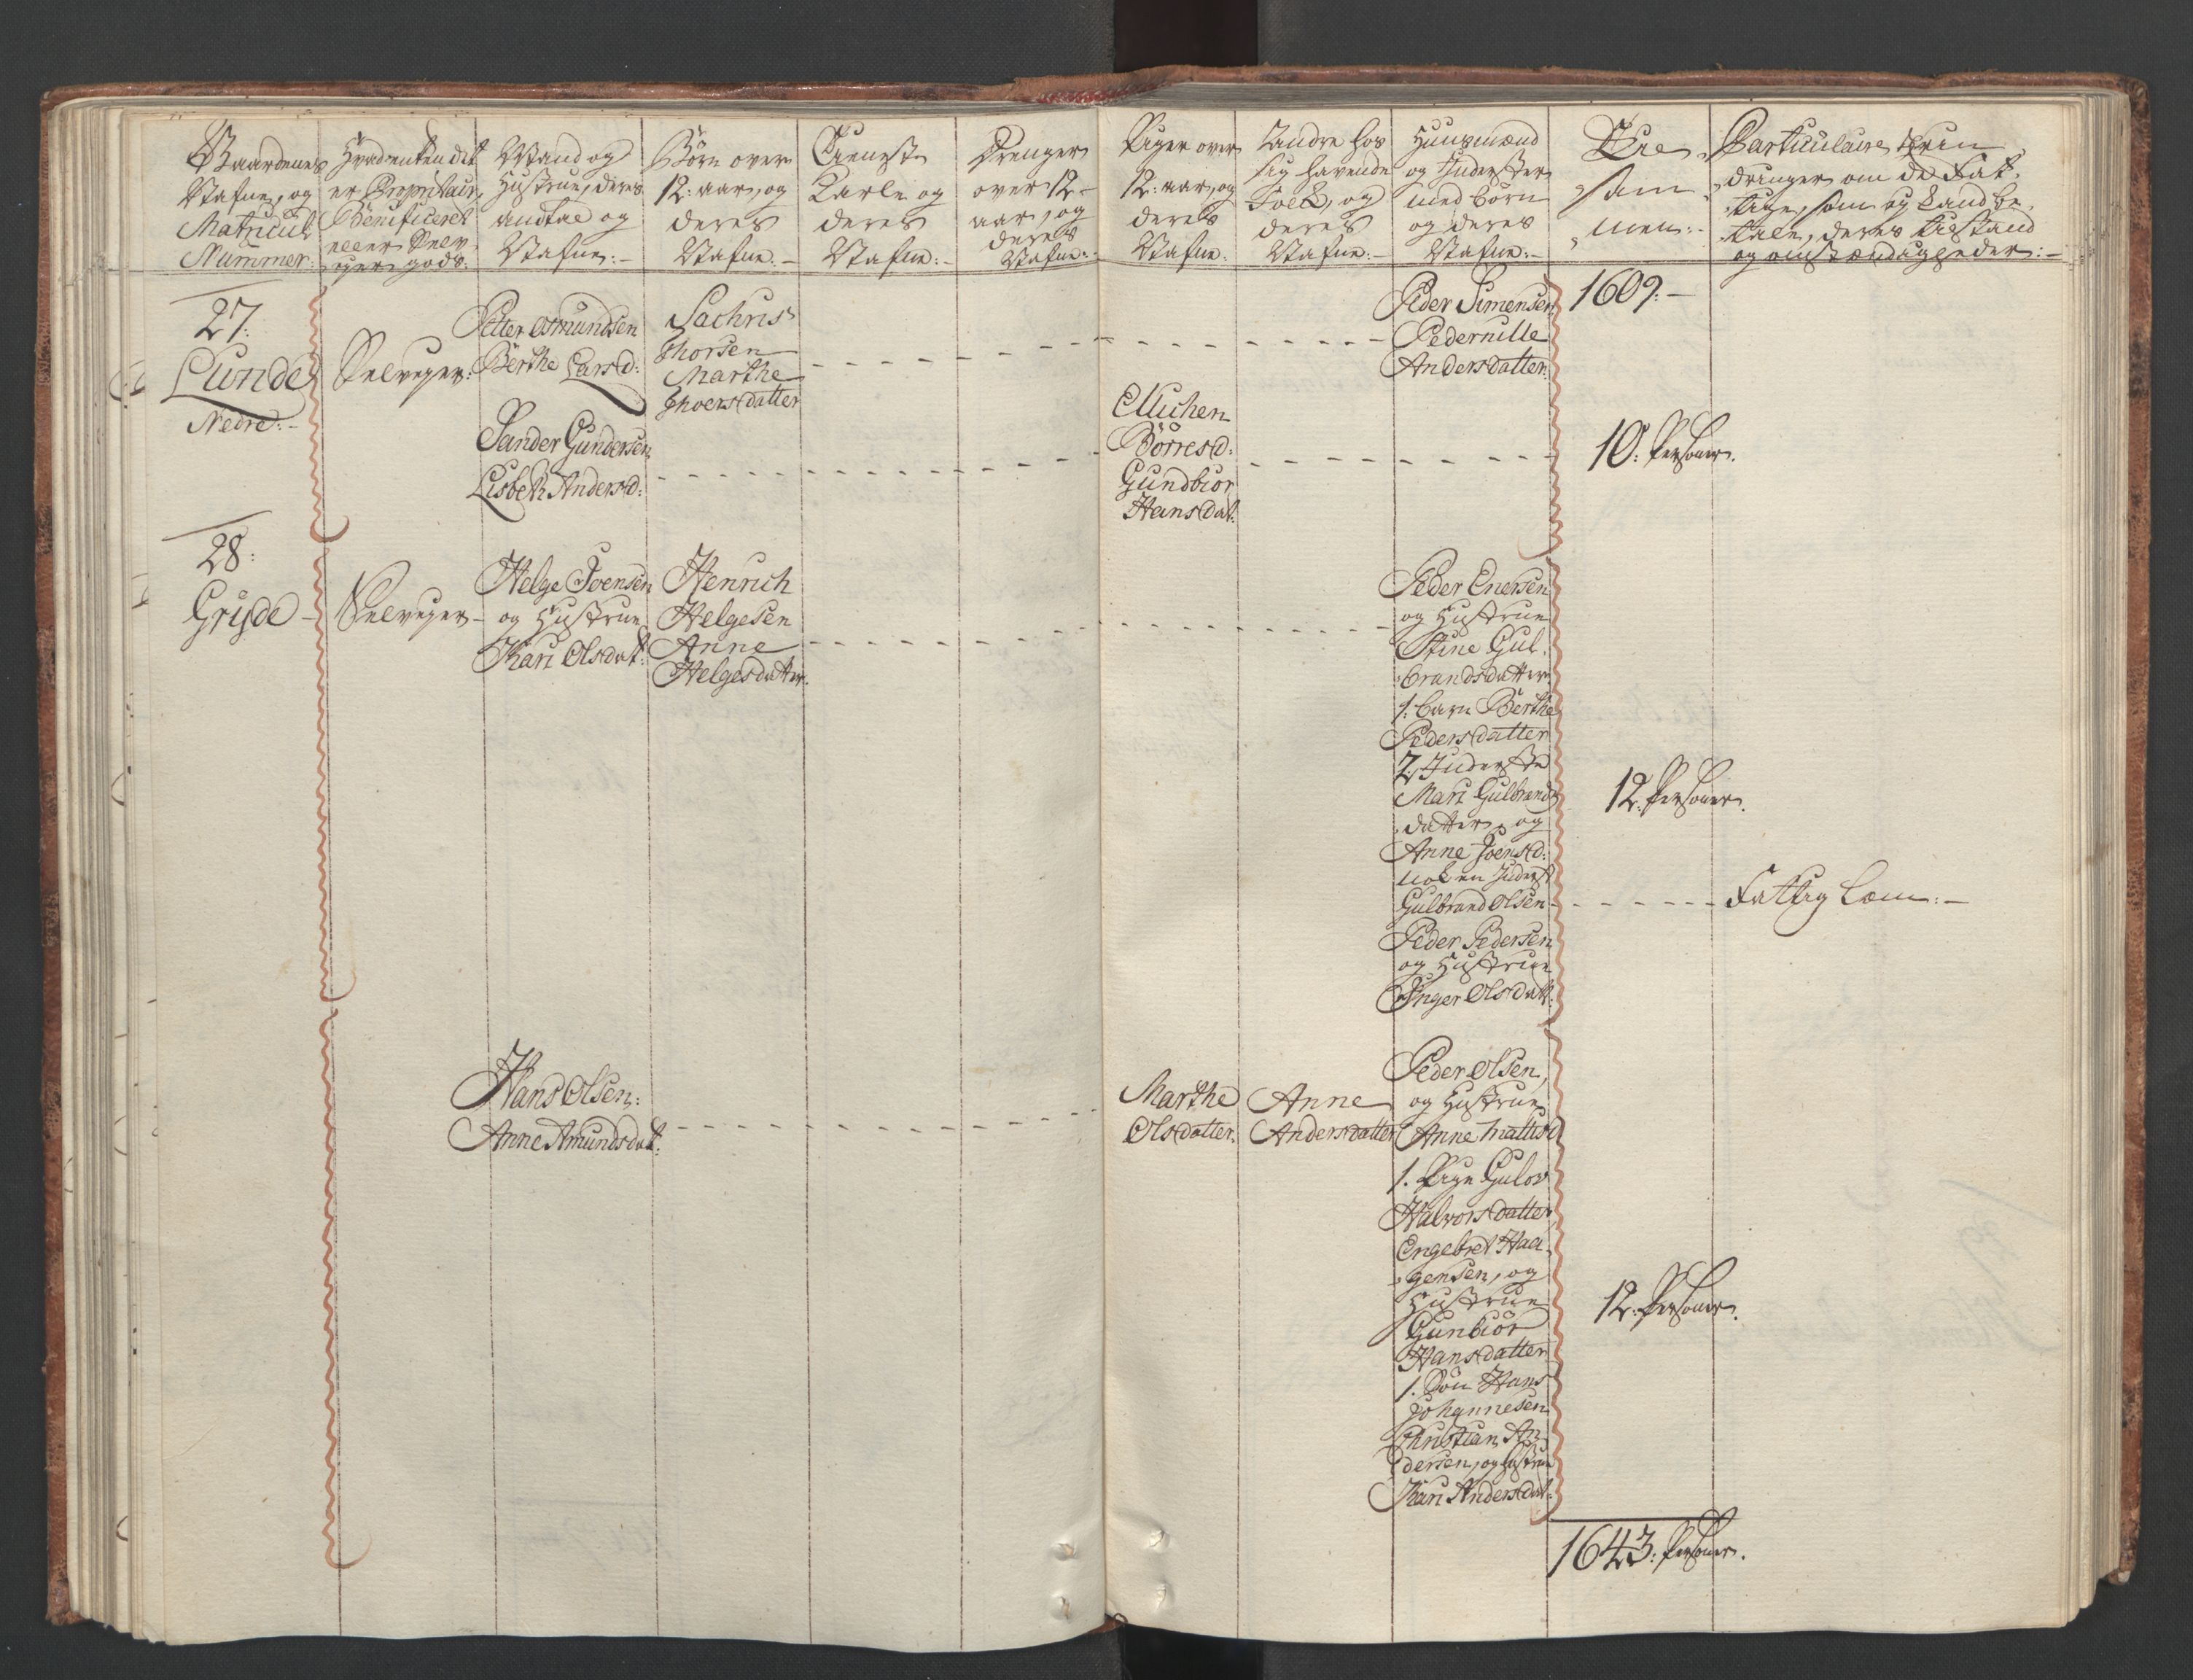 Gaardenes
Nafne, og
Matricul
Nummer:
Hvad enten det
er Proprietair,
Beneficeret
eller Selv-
eyer gods:
Mand og
Hustrue, deres
andtal og
Nafne:-
Børn over
12: aar, og
deres
Nafne:-
Tieneste
Karle og
deres
Nafne:-
Drenger
over 12-
aar, og
deres
Nafne:-
Piger over
12: aar, og
deres
Nafne:
Andre hos
sig havende
Folck, og
deres
Nafne:-
Huusmænd
og Inderster
med børn
og deres
Nafne:-
Ere
sam-
men:-
Particulaire Erin-
dringer om de Fat-
tige, som ey kand be-
tale, deres tilstand
og omstændigheder:-
27:
Lunde
Nedre:-
Selveyer:
Petter Osmundsen
Berthe Larsd:
Sachris
Thorsen
Marthe
Thoersdatter
Peder Simensen
Pedernille
Andersdatter:
1609:-
Sander Gundersen
Lisbeth Andersd:
Ellichen
Börresd:
Gundbior
Hansdat:
10: Persohner.
28:
Grÿde -
Selveyer -
Helge Joensen
og Hustrue
Kari Olsdat:
Henrich
Helgesen
Anne
Helgesdatter.
Peder Enersen
og Hustrue
Stine Gul-
brandsdatter
1: barn Berthe
Pedersdatter
2: Inderste
Mari Gulbrands
datter, og
Anne Joensd:
nok en Inderst
Gulbrand Olsen-
Peder Pedersen
og Hustrue
Inger Olsdatt:
12: Persohner.
Fattig Lem:-
Hans Olsen:
Anne Amundsdat:
Marthe
Olsdatter:
Anne
Andersdatter
Peder Olsen,
og Hustrue
Anne Mattisd
1. Pige Gulov
Halvorsdatter,
Engebret Haa-
gensen, og
Hustrue
Gunbior
Hansdatter
1. Søn Hans
Johannesen
Christian An-
dersen, og Hustrue
Kari Andersdat:
12: Persohner.
1643: Persohner.